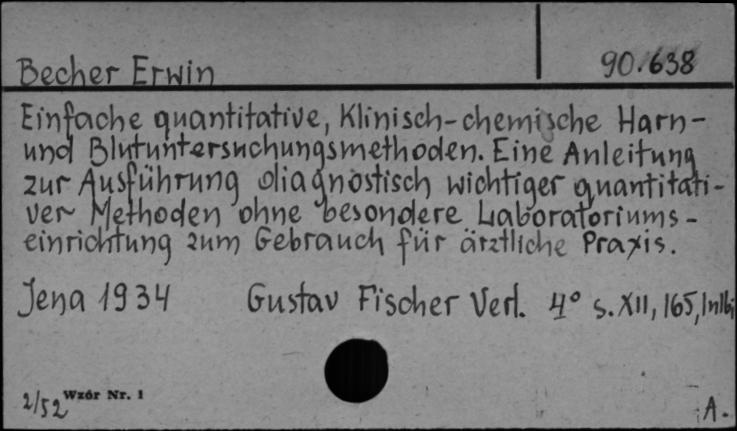 Becher Erwin
90.638
Einfache quantitative, Klinisch-chemische Harn-
und Blutuntersuchungsmethoden. Eine Anleitung
zur Ausführung diagnostisch wichtiger quantitati-
ver Methoden ohne besondere Laboratoriums-
einrichtung zum Gebrauch für ärztliche Praxis.
Jena 1934 Gustav Fischer Verl. 4° s. XII, 165,
2/52 Wzór Nr. 1
A.